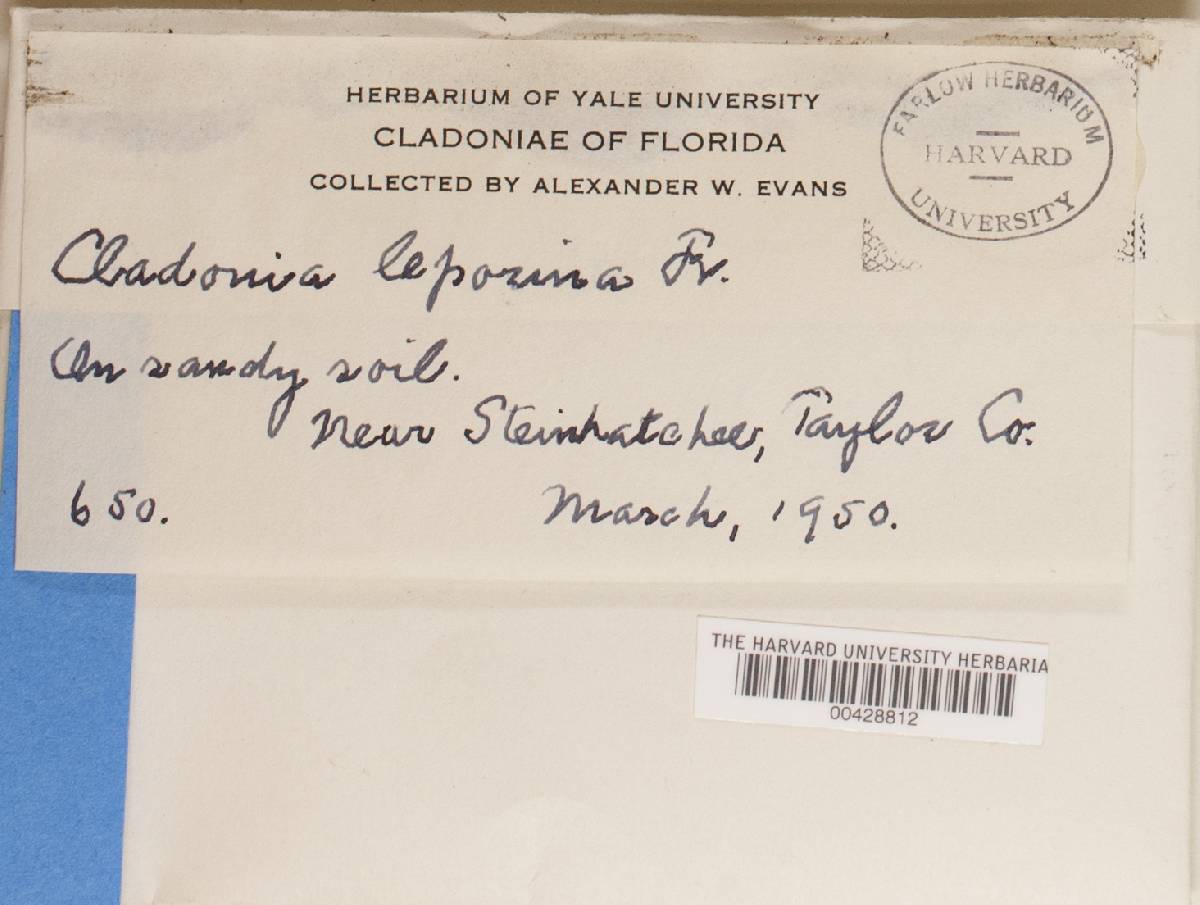 HERBARIUM OF YALE UNIVERSITY
CLADONIAE OF FLORIDA
COLLECTED BY ALEXANDER W. EVANS
FARLOW HERBARIUM
HARVARD
UNIVERSITY
Cladonia leporina Fr.
On sandy soil.
Near Steinhatchee, Taylor Co.
650. March, 1950.
THE HARVARD UNIVERSITY HERBARIA
00428812